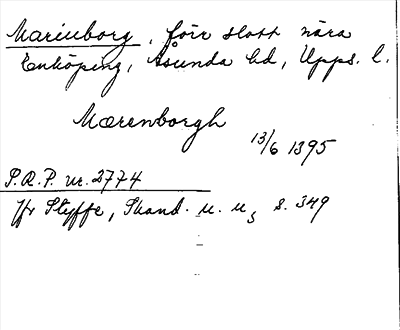 Marieborg, förr slott nära
Enköping, Åsunda hd, Upps. l.
Mærenborgh
13/6 1395
P.R.P. nr. 2774
Jfr Styffe, Skand. u. u, s. 349